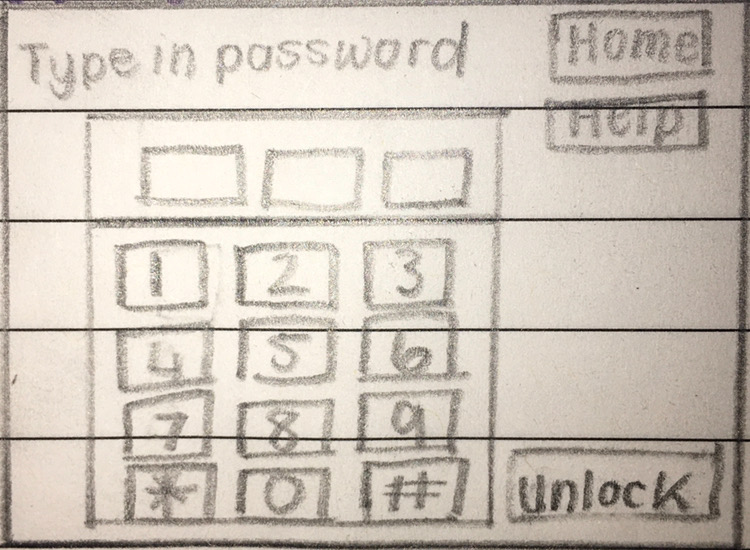 Type in password
Home
Help
1 2 3
4 5 6
7 8 9
* 0 #
Unlock